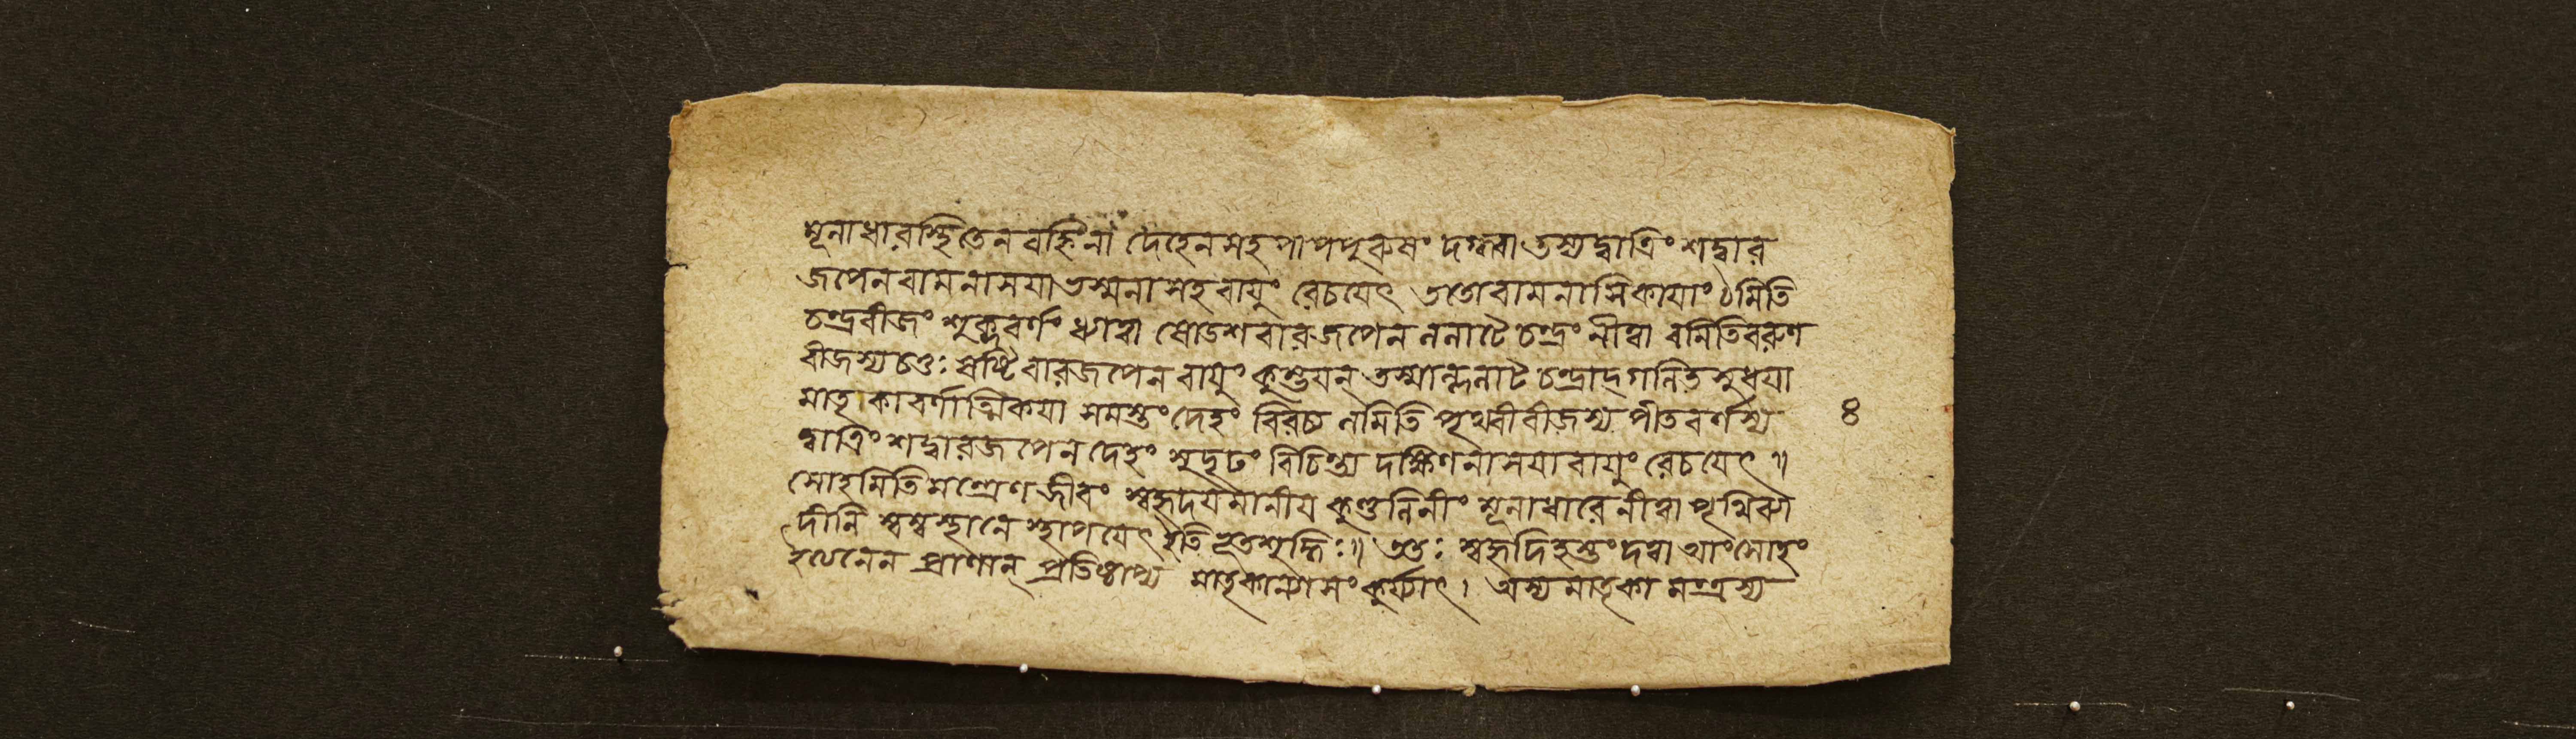 মূলাধারস্থিতেন বহ্নিনা দেহেন সহ পাপপুরুষং দগ্ধ্বা তস্য দ্বাত্রিংশদ্বার
জপেন বামনাসয়া ভস্মনা সহ বায়ুং রেচয়েৎ ততো বামনাসিকায়াং ঠমিতি
চন্দ্রবীজং শুক্লবর্ণং ধ্যাত্বা ষোডশবারজপেন ললাটে চন্দ্রং নীত্বা বমিতি বরুণ
বীজস্য চতুঃষষ্টিবারজপেন বায়ুং কুম্ভয়ন্ তস্মাল্ললাট চন্দ্রাদ্গলিতসুধয়া
মাতৃকাবর্ণাত্মিকয়া সমস্তং দেহং বিরচ্য লমিতি পৃথ্বীবীজস্য পীতবর্ণস্য
দ্বাত্রিংশদ্বারজপেন দেহং সুদৃঢং বিচিন্ত্য দক্ষিণনাসয়া বায়ুং রেচয়েৎ ॥
সোহমিতি মন্ত্রেণ জীবং স্বহৃদয়মানীয় কুণ্ডলিনীং মূলাধারে নীত্বা পৃথিব্যা
দীনি স্বস্বস্থানে স্থাপয়েৎ ইতি ভূতশুদ্ধিঃ ॥ ততঃ স্বহৃদি হস্তং দত্বা আং সোহং
ইত্যনেন প্রাণান্ প্রতিষ্ঠাপ্য মাতৃকান্যাসং কুর্য্যাৎ । অস্য মাতৃকা মন্ত্রস্য
৪